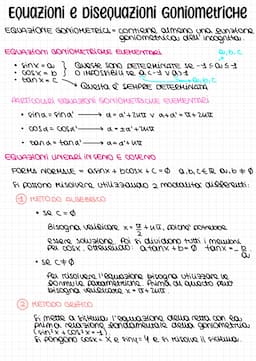 EQUAZIONI E DISEQUAZIONI GONIOMETRICHE
EQUAZIONE GONIOMETRICA = contiene almeno una funzione
goniometrica dell'incognita.
EQUAZIONI GONIOMETRICHE ELEMENTARI
a, b, c
• sin x = a
• cos x = b
QUESTE SONO DETERMINATE SE -1 ≤ a ≤ 1
O IMPOSSIBILI SE a < -1 ∨ a > 1
a, b, c
• tan x = c
QUESTA È SEMPRE DETERMINATA
PARTICOLARI EQUAZIONI GONIOMETRICHE ELEMENTARI
• sin a = sin a' → a = a' + 2kπ ∨ a + a' = π + 2kπ
• cos a = cos a' → a = ± a' + 2kπ
• tan a = tan a' → a = a' + kπ
EQUAZIONI LINEARI IN SENO E COSENO
FORMA NORMALE = a sin x + b cos x + c = 0 a, b, c ∈ R, a, b ≠ 0
Si possono risolvere utilizzando 2 modalità differenti:
1 METODO ALGEBRICO
• se c = 0
Bisogna verificare x = π/2 + kπ, poiché potrebbe
essere soluzione. Poi si dividono tutti i membri
per cos x, ottenendo: a tan x + b = 0 tan x = - b/a
• se c ≠ 0
Per risolvere l'equazione bisogna utilizzare le
formule parametriche. Prima di questo però
bisogna verificare x = π + 2kπ
2 METODO GRAFICO
Si mette a sistema l'equazione della retta con la
prima relazione fondamentale della goniometria
(sin²x + cos²x = 1)
Si pongono cos x = X e sin x = Y e si risolve il sistema.